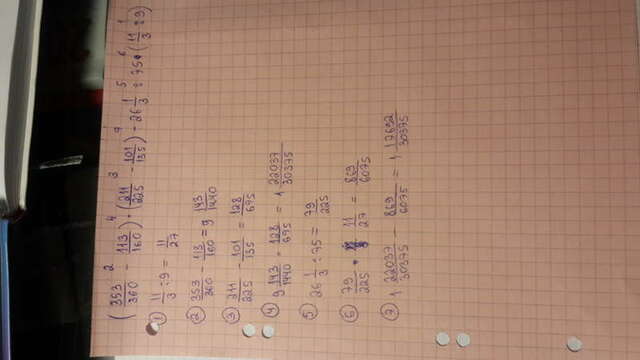 (353/360 - 113/160) · (211/225 - 101/135) - 26 1/3 : 75 · (11/3 : 9)
① 11/3 : 9 = 11/27
② 353/360 - 113/160 = 9 143/1440
③ 211/225 - 101/135 = 128/675
④ 9 143/1440 · 128/675 = 1 22037/30375
⑤ 26 1/3 : 75 = 79/225
⑥ 79/225 · 11/27 = 869/6075
⑦ 1 22037/30375 - 869/6075 = 1 17692/30375